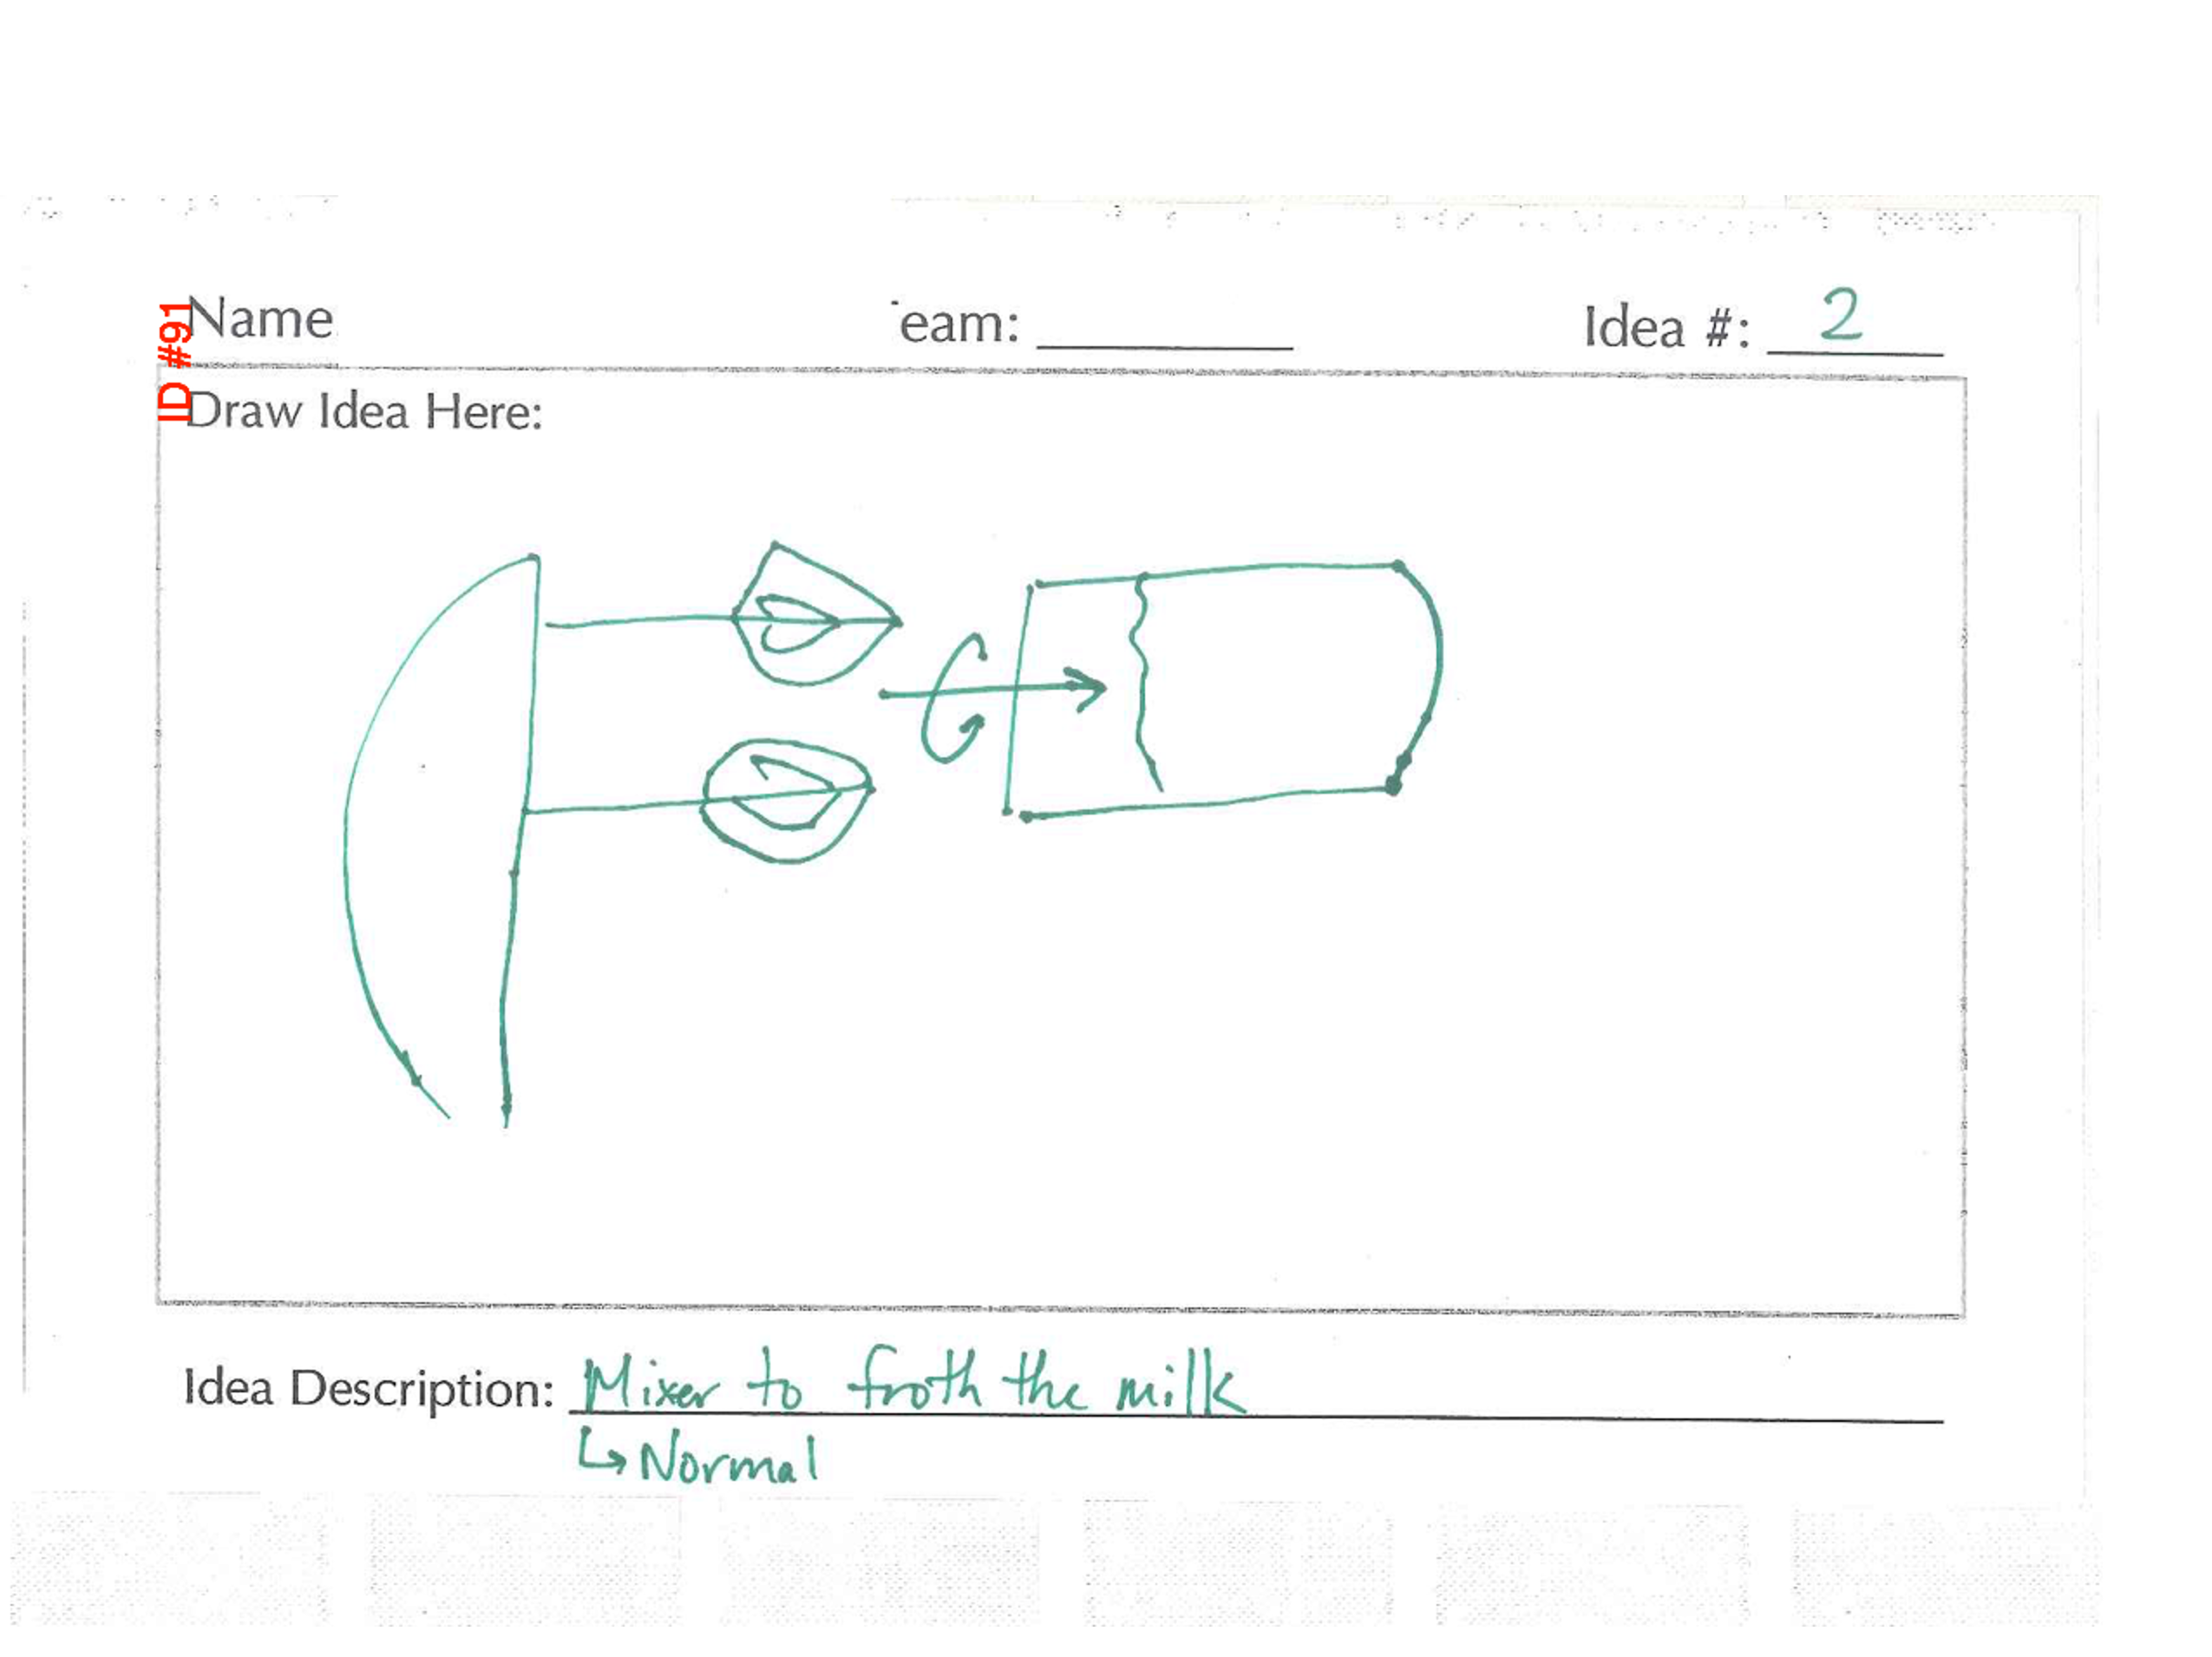 Name
eam:
Idea #: 2
ID #91
Draw Idea Here:
Idea Description: Mixer to froth the milk
↳ Normal